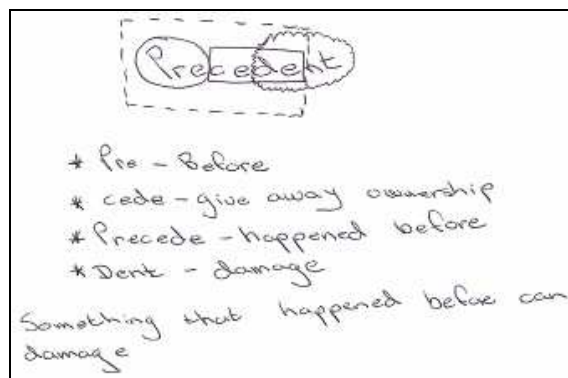 Precedent
* Pre - Before
* cede - give away ownership
* Precede - happened before
* Dent - damage
Something that happened before can
damage